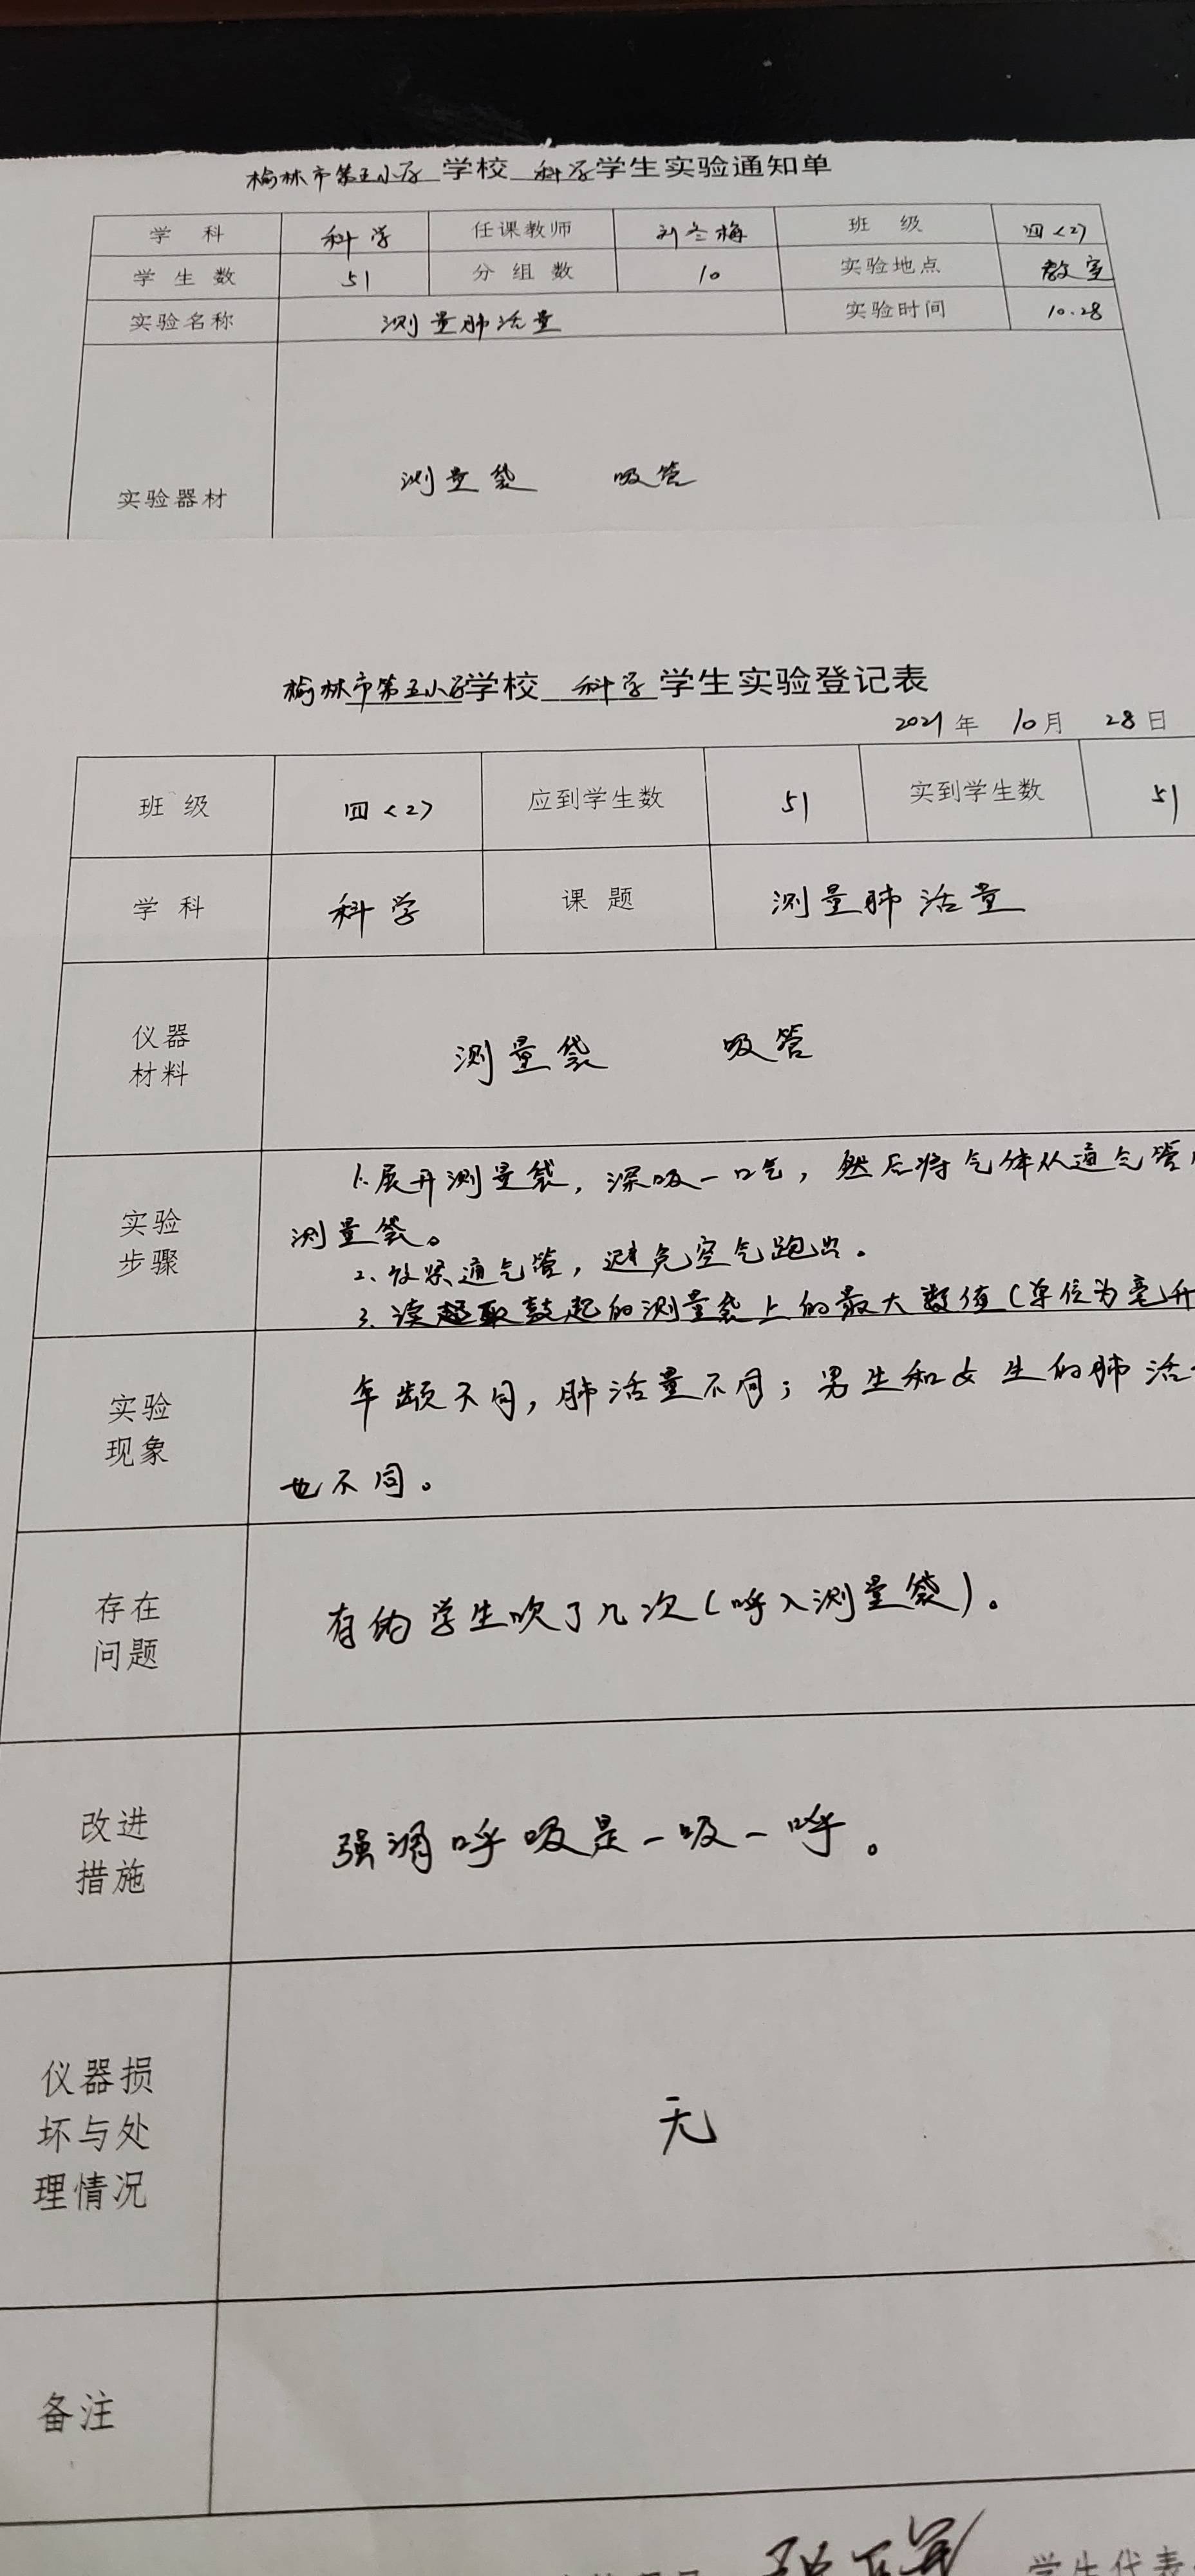 榆林市第五小学 学校 科学 学生实验通知单
学 科 科学 任课教师 刘冬梅 班 级 四<2>
学 生 数 51 分 组 数 10 实验地点 教室
实验名称 测量肺活量 实验时间 10.28
实验器材 测量袋 吸管
榆林市第五小学 学校 科学 学生实验登记表
2021 年 10 月 28 日
班 级 四<2> 应到学生数 51 实到学生数 51
学 科 科学 课 题 测量肺活量
仪器
材料
测量袋 吸管
实验
步骤
1.展开测量袋,深吸一口气,然后将气体从通气管
测量袋。
2、放紧通气管,避免空气跑出。
3.读取鼓起的测量袋上的最大数值(单位为毫升
实验
现象
年龄不同,肺活量不同;男生和女生的肺活
也不同。
存在
问题
有的学生吹了几次(呼入测量袋)。
改进
措施
强调呼吸是一吸一呼。
仪器损
坏与处
理情况
无
备注
学生代表